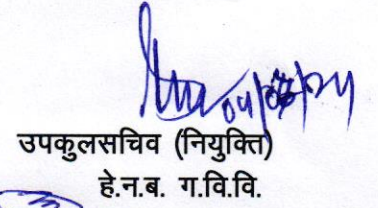 उपकुलसचिव (नियुक्ति)
हे.न.ब. ग.वि.वि.